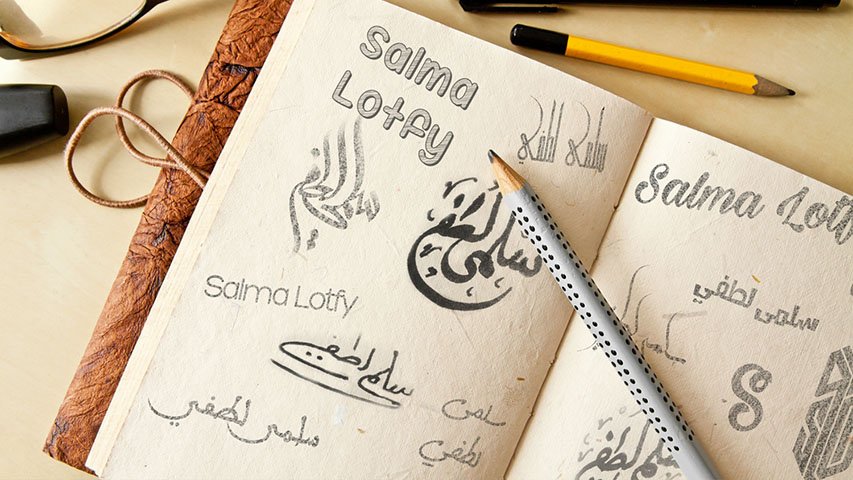 Salma
Lotfy
سلمى لطفي
سلمى لطفي
سلمى لطفي
Salma Lotfy
سلمى لطفي
سلمى لطفي
سلمى
لطفي
Salma Lotfy
سلمى لطفي
S
سلمى لطفي